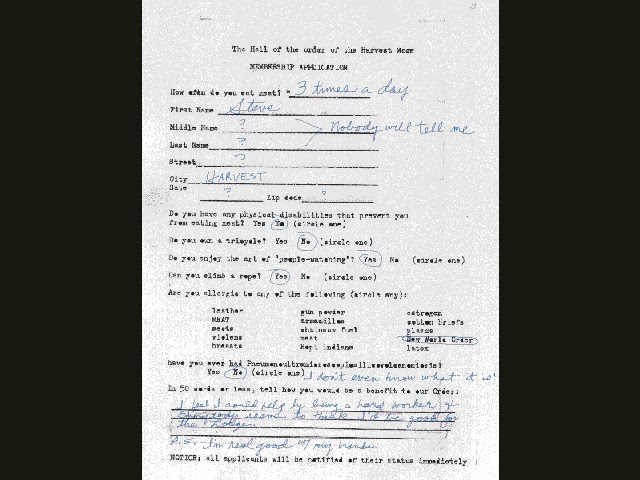 The Hall of the order of the Harvest Moon
MEMBERSHIP APPLICATION
How often do you eat meat? 3 times a day
First Name Steve
Middle Name ?
Nobody will tell me
Last Name ?
Street ?
City HARVEST
State ? Zip code ?
Do you have any physical disabilities that prevent you
from eating meat? Yes No (circle one)
Do you own a tricycle? Yes No (circle one)
Do you enjoy the art of "people-watching"? Yes No (circle one)
Can you climb a rope? Yes No (circle one)
Are you allergic to any of the following (circle any):
leather gun powder estrogen
MEAT armadillos cotton briefs
meats chainsaw fuel plasma
violens meat New World Order
breasts Hopi indians latex
have you ever had
Yes No (circle one) I don't even know what it is!
In 50 words or less, tell how you would be a benefit to our Order:
I feel I could help by being a hard worker &
everybody seems to think I'd be good for
the
P.S. I'm real good w/ my hands
NOTICE: all applicants will be notified of their status immediately